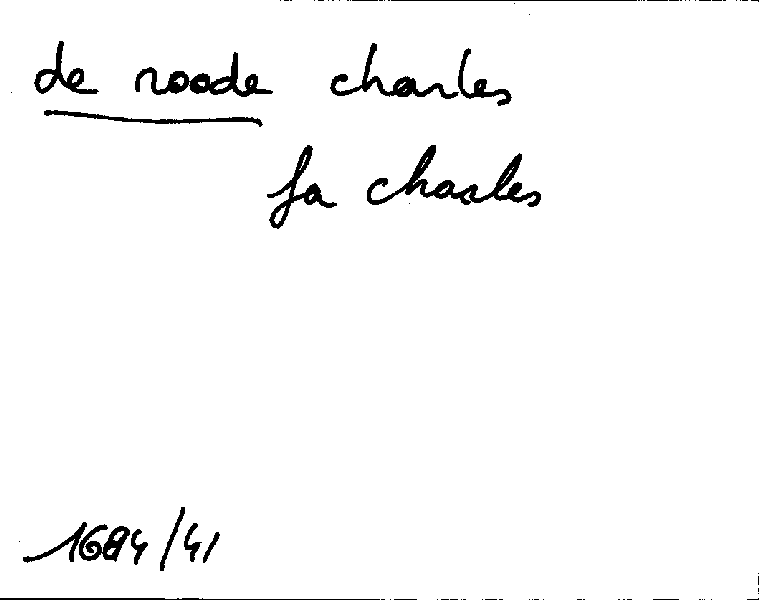 de roode charles
fa charles
1684/41